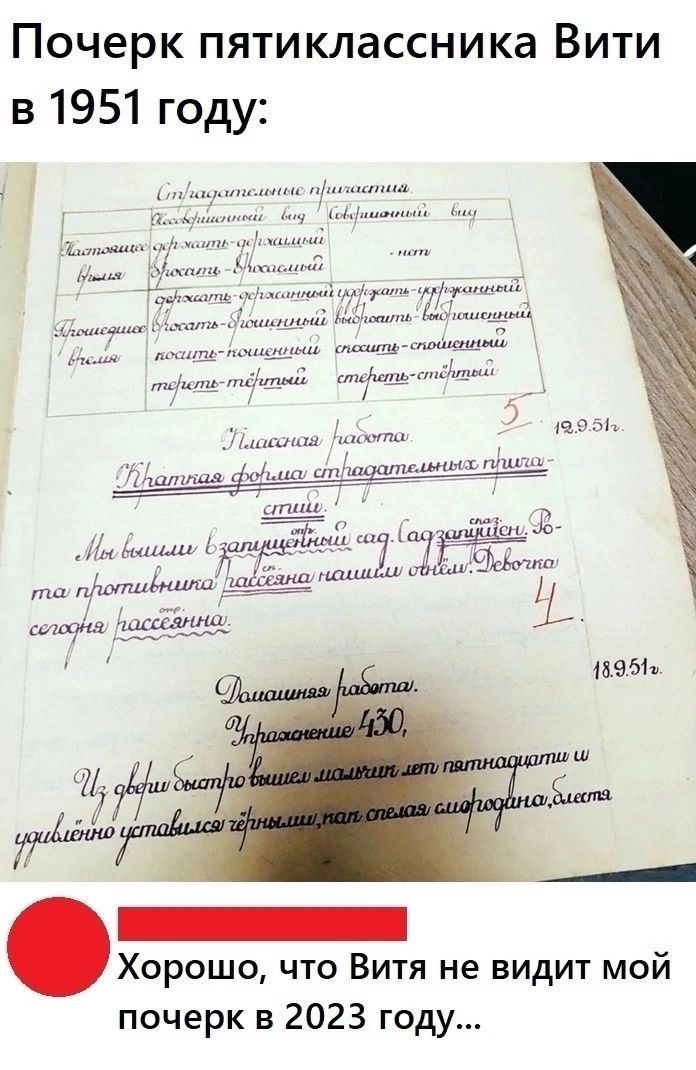 Почерк пятиклассника Вити
в 1951 году:
Страдательные причастия.
Несовершенный вид Совершенный вид
Настоящее время держать-держимый - нет
бросать-бросаемый
Прошедшее время держать-держанный удержать-удержанный
бросать-брошенный выбросить-выброшенный
косить-кошенный скосить-скошенный
тереть-тёртый стереть-стёртый
5
Классная работа. 12.9.51г.
Краткая форма страдательных прича-
стий.
опр. сказ.
Мы вышли в запущенный сад. Сад запущен. Ро-
ск.
та противника рассеяна нашим огнём. Девочка
опр.
сегодня рассеянна.
4
Домашняя работа. 18.9.51г.
Упражнение 430,
Из двери быстро вышел мальчик лет пятнадцати и
удивлённо уставился чёрными, как спелая смородина, блестя
Хорошо, что Витя не видит мой
почерк в 2023 году...